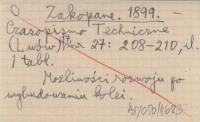 O Zakopane. 1899. –
Czasopismo Techniczne
(Lwów) 17 nr 27: 208-210, il.
1 tabl.
Możliwości rozwoju po
wybudowaniu kolei.